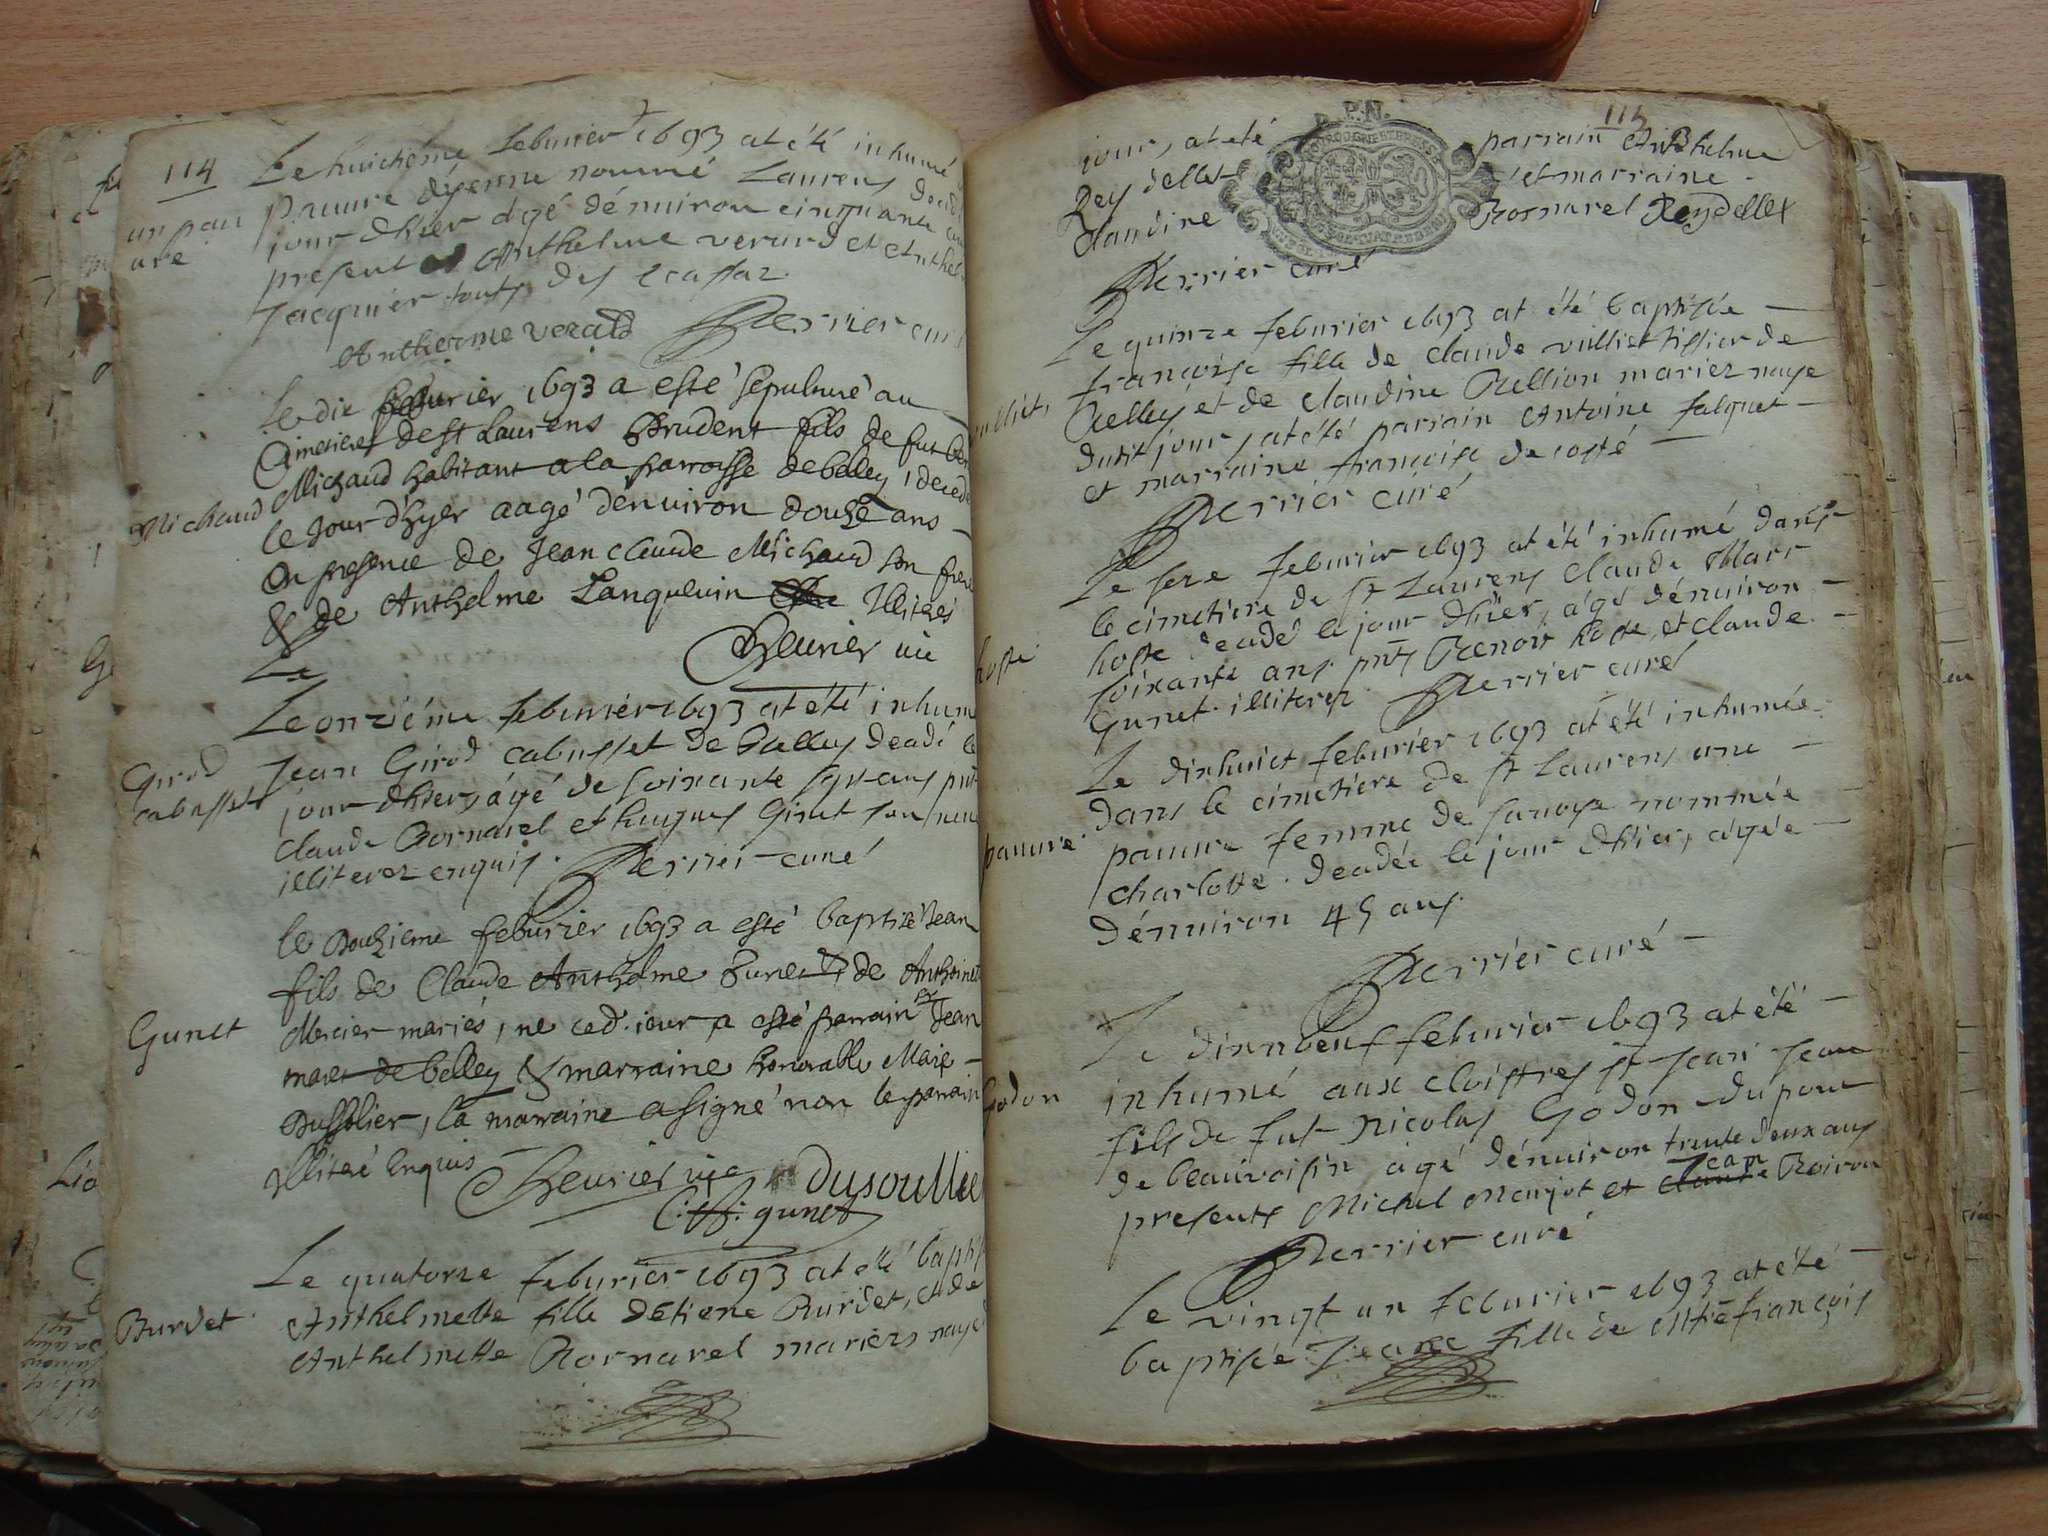 114
Le huictiéme feburier 1693 at été inhumé
un pau
vre
pauvre dyenne nommé Laurens decedé
jour dhier agé dénuiron cinquante
present Anthelme verard et Anthel
Jacquier touts des ecassaz
Anthelme verard Perrier curé
Le dix feburier 1693 a esté sepulturé au
Cimetiere de st Laurens Prudent fils de fut
Michaud
Michaud habitant a la parroisse de belley, decedé
le Jour d'hyer aagé d'enuiron douze ans
En presence de Jean claude Michaud son frere
& de Anthelme Languluin Illiterés
Le
Le onziéme feburier 1693 at été inhumé
Girod
cabusset
Jean Girod cabusset de Belley decedé le
jour dhier, ágé de soixante ans pnt
Claude Bornarel et hugues Ginet son
illiterez enquis. Perrier curé
le Douzieme feburier 1693 a esté baptizé Jean
fils de Claude Anthelme Gunet & de Anthoinette
Gunet
Mercier mariés, ne ced. jour, a esté parrain Sr Jean
de belley & marraine honorable Marie
Dussolier, la marraine a signé non le parrain
Illiteré Enquis
dusoullie
gunet
Le quatorze feburier 1693 at eté baptisée
Burdet
Anthelmette fille détiene Burdet, et de
Anthelmette Bornarel mariers naye
115
jour, at eté parrain Anthelme
Reydellet et marraine
Claudine Bornarel Reydellet
Perrier curé
Le quinze feburier 1693 at été baptisée
françoise fille de claude vulliet tissier de
vulliet
Belley et de claudine Bellion mariez naye
dudit jour, at été parrain Antoine falquet
et marraine françoise decosté
Perrier curé
Le seze feburier 1693 at été inhumé dans
le cimetiere de st Laurens claude Marc
hoste
hoste decedé le jour dhier, ágé dénuiron
soixante ans. pnts Benoit hoste, et claude
Gunet. illiterez. Perrier curé
Le dixhuict feburier 1693 at été inhumée
dans le cimetiere de st Laurens une
pauvre
pauvre femme de savoye nommée
charlotte. decedée le jour dhier, agée
dénuiron 45 ans.
Perrier curé
Le dixneuf feburier 1693 at été
inhumé aux cloistres st Jean Jean
Godon
fils de fut Nicolas Godon du pont
de beauvoisin ágé dénuiron trente deux ans
presents Michel Monjot et claude Jean Boiron
Perrier curé
Le vingt un feburier 1693 at été
baptisée Jeanne fille de Mtre françois